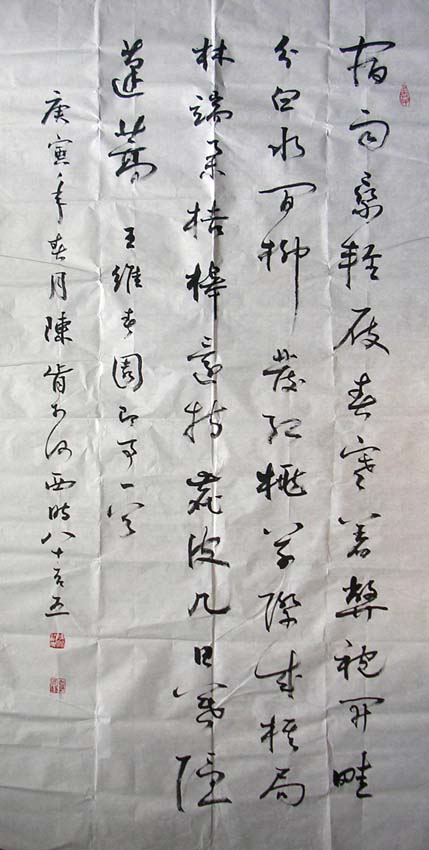 宿雨乘輕屐春寒著弊袍开畦
分白水間柳發紅桃草際成棋局
林端举桔槔還持鹿皮几日暮隱
蓬蒿 王維春園即事一首
庚寅年春月陳肯书西時八十有五